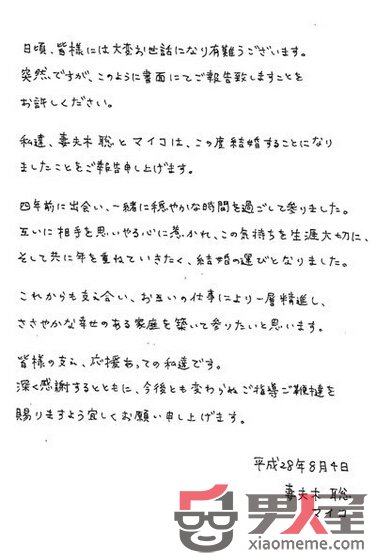 日頃、皆様には大変お世話になり有難うございます。
突然ですが、このように書面にてご報告致しますことを
お許しください。
私達、妻夫木 聡とマイコは、この度結婚することになり
ましたことをご報告申し上げます。
四年前に出会い、一緒に穏やかな時間を過ごして参りました。
互いに相手を思いやる心に惹かれ、この気持ちを生涯大切に、
そして共に年を重ねていきたく、結婚の運びとなりました。
これからも支え合い、お互いの仕事により一層精進し、
ささやかな幸せのある家庭を築いて参りたいと思います。
皆様の支え、応援あっての私達です。
深く感謝するとともに、今後とも変わらぬご指導ご鞭撻を
賜りますよう宜しくお願い申し上げます。
平成28年8月4日
妻夫木 聡
マイコ
男人窝
xiaomeme.com